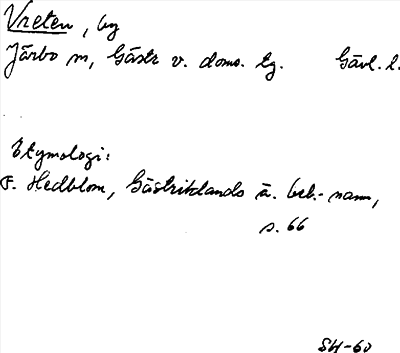 Vreten, by
Järbo sn, Gästr v. doms. tg. Gävl. l.
Etymologi:
F. Hedblom, Gästriklands ä. beb.- namn,
s. 66
SH-60